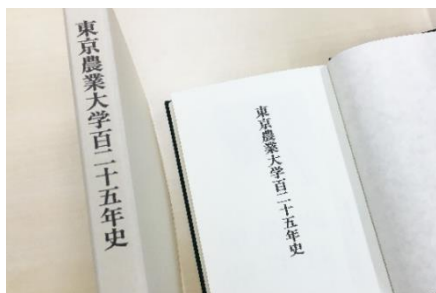 東京農業大学百二十五年史
東京農業大学百二十五年史